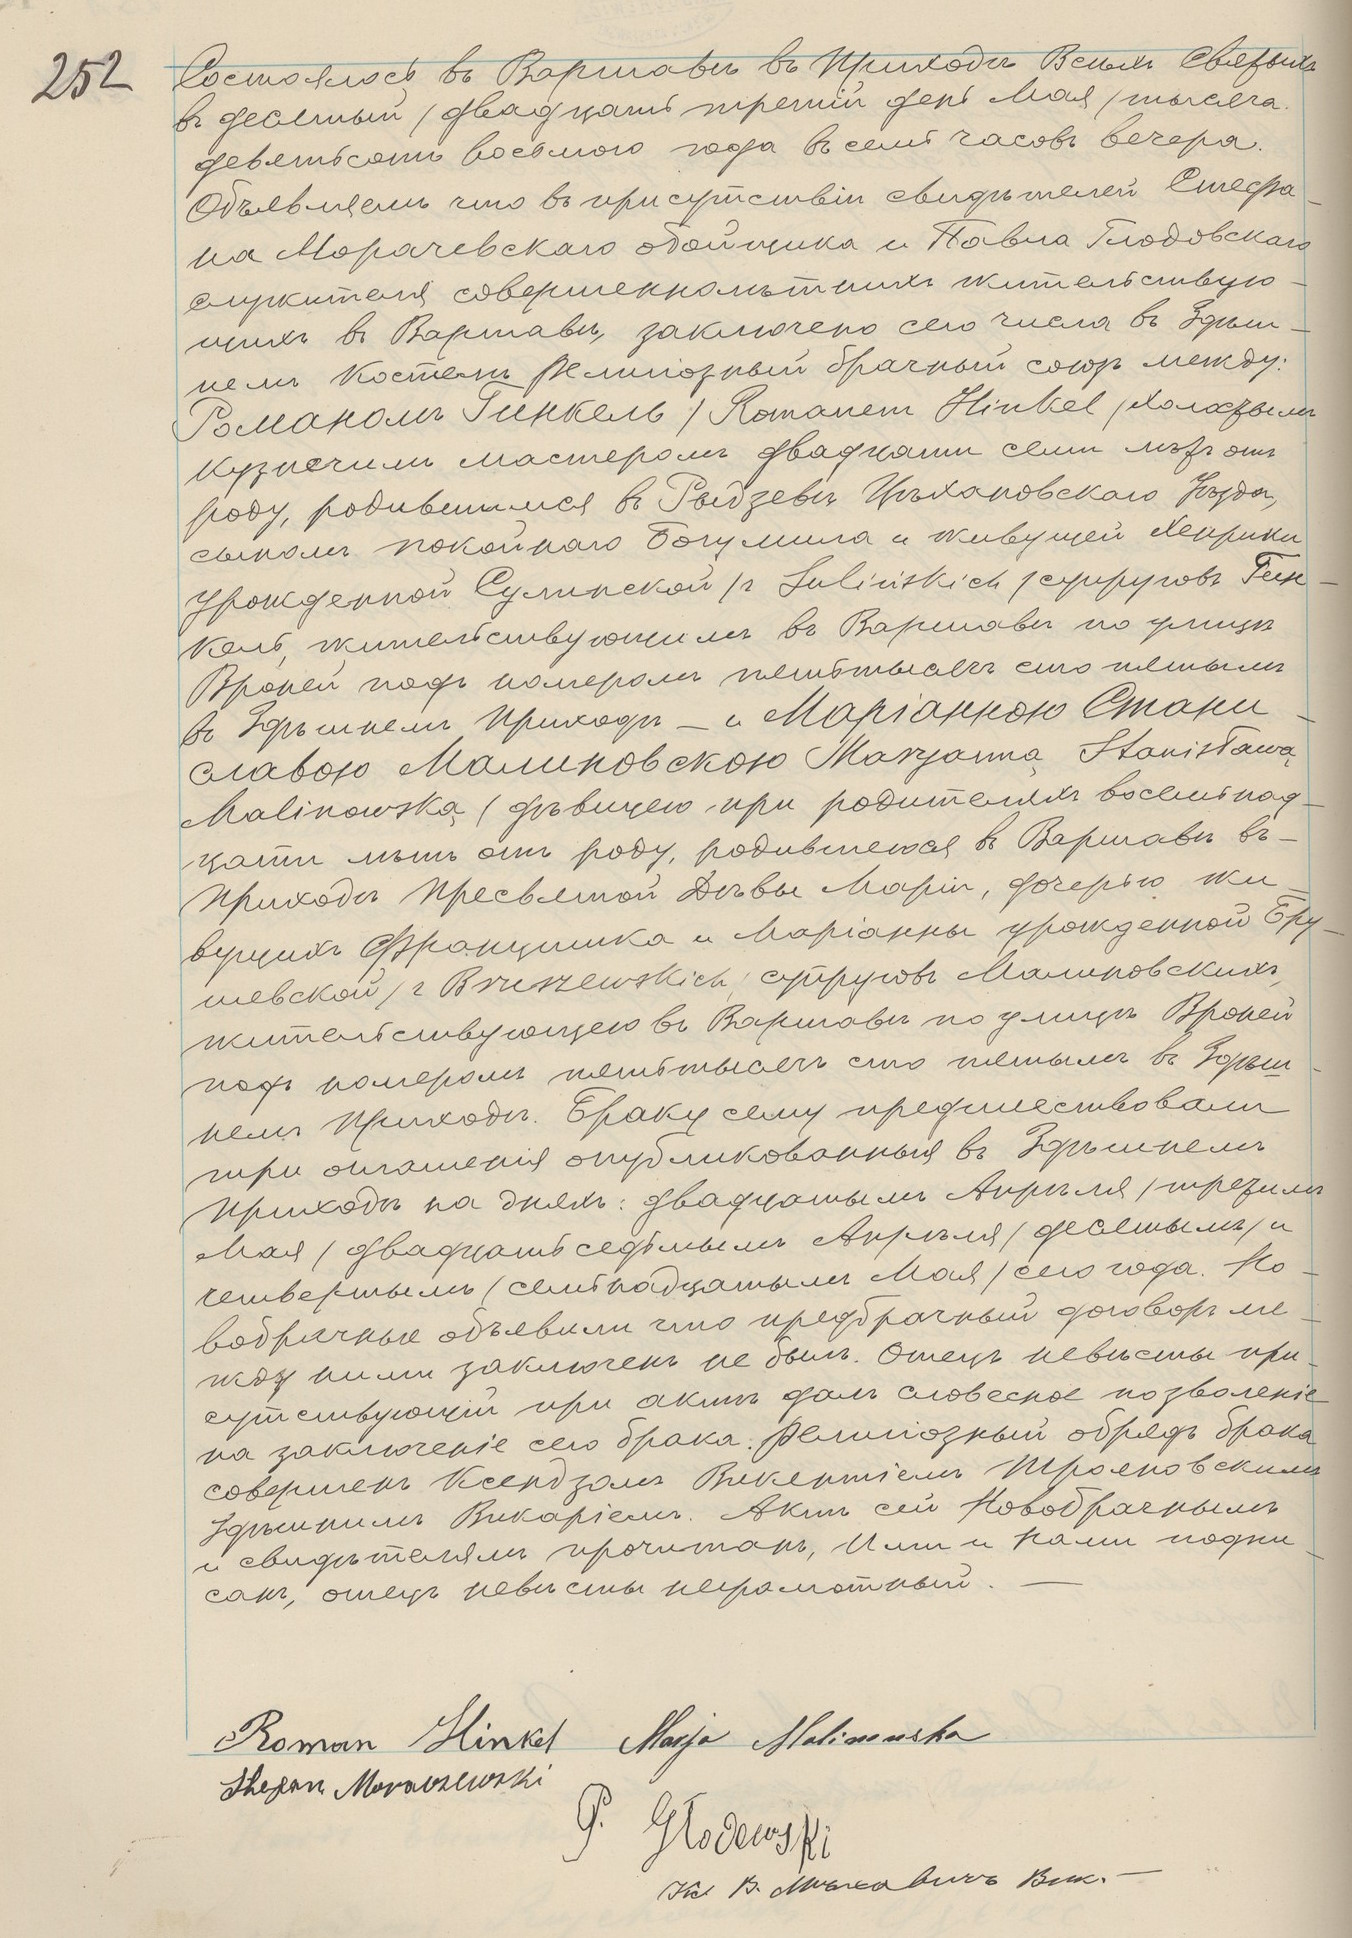 252
Состоялось въ Варшавѣ въ Приходѣ Всѣхъ Святыхъ
въ десятый / двадцать третій день Мая / тысяча
девятьсотъ восьмого года въ семь часовъ вечера.
Объявляемъ что въ присутствіи свидѣтелей Стефа-
на Морачевскаго обойщика и Павла Глодовскаго
служителя совершеннолѣтнихъ жительствую-
щихъ въ Варшавѣ, заключено сего числа въ Здѣш-
немъ Костелѣ Религіозный брачный союзъ между:
Романомъ Гинкель / Romanem Hinkel / холостымъ
кузнечнымъ мастеромъ двадцати семи лѣтъ отъ
роду, родившимся въ Рыдзевѣ Цѣхановскаго Уѣзда,
сыномъ покойнаго Богумила и живущей Хенрики
урожденной Сулинской / z Sulińskich / супруговъ Гин-
кель, жительствующимъ въ Варшавѣ по улицѣ
Вроней подъ номеромъ пятьтысячъ сто пятымъ
въ Здѣшнемъ Приходѣ — и Маріанною Стани-
славою Малиновскою Maryanną Stanisławą
Malinowską / дѣвицею при родителяхъ восемнад-
цати лѣтъ отъ роду, родившеюся въ Варшавѣ въ-
Приходѣ Пресвятой Дѣвы Маріи, дочерью жи-
вущихъ Францишка и Маріанны урожденной Бру-
шевской / z Bruszewskich / супруговъ Малиновскихъ,
жительствующею въ Варшавѣ по улицѣ Вроней
подъ номеромъ пятьтысячъ сто пятымъ въ Здѣш-
немъ Приходѣ. Браку сему предшествовали
три оглашенія опубликованныя въ Здѣшнемъ
Приходѣ на дняхъ: двадцатымъ Апрѣля / третьимъ
Мая / двадцать седьмымъ Апрѣля / десятымъ / и
четвертымъ / семнадцатымъ Мая / сего года. Но-
вобрачные объявили что предбрачный договоръ ме-
жду ними заключенъ не былъ. Отецъ невѣсты при-
сутствующій при актѣ далъ словесное позволеніе
на заключеніе сего брака. Религіозный обрядъ брака
совершенъ Ксендзомъ Викентіемъ Трояновскимъ
Здѣшнимъ Викаріемъ. Актъ сей Новобрачнымъ
и свидѣтелямъ прочитанъ, Ими и Нами подпи-
санъ, отецъ невѣсты неграмотный. —
Roman Hinkel Marja Malinowska
Stefan Moraczewski
P. Głodowski
Кс. В. Вик. —